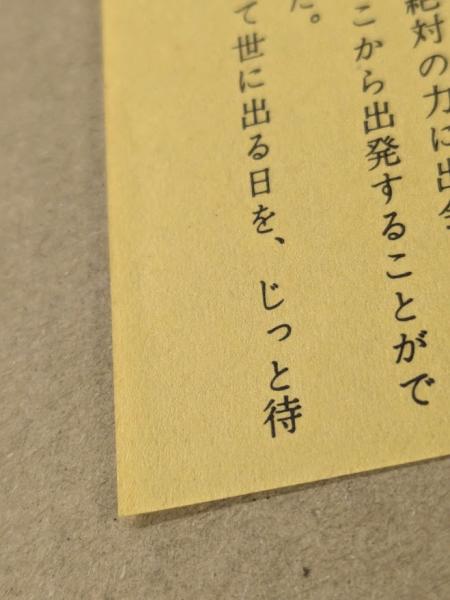 絶対の力に出会
こから出発することがで
た。
て世に出る日を、じっと待